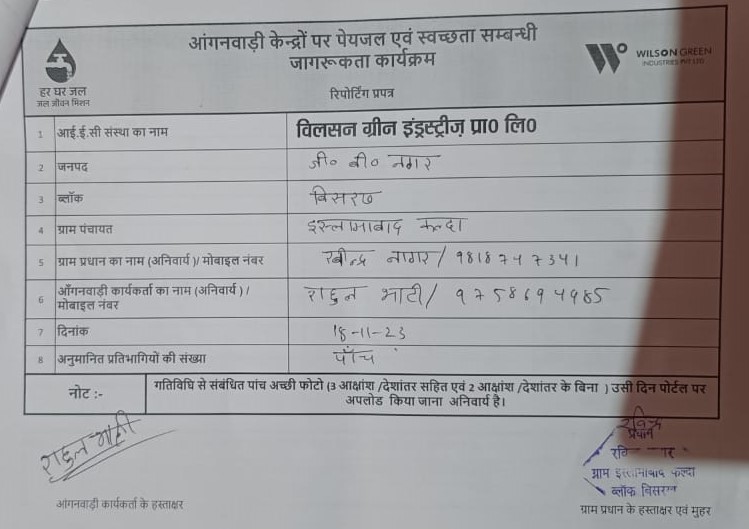 आंगनवाड़ी केन्द्रों पर पेयजल एवं स्वच्छता सम्बन्धी
जागरूकता कार्यक्रम
हर घर जल
जल जीवन मिशन
WILSON GREEN
INDUSTRIES PVT LTD
रिपोर्टिंग प्रपत्र
1 आई.ई.सी संस्था का नाम विलसन ग्रीन इंड्रस्ट्रीज़ प्रा0 लि0
2 जनपद जी० बी० नगर
3 ब्लॉक बिसरख
4 ग्राम पंचायत इस्लामाबाद कल्दा
5 ग्राम प्रधान का नाम (अनिवार्य )/ मोबाइल नंबर रबीन्द्र नागर / 9818747341
6 आँगनवाड़ी कार्यकर्ता का नाम (अनिवार्य ) / राहुल भाटी / 9758694985
मोबाइल नंबर
7 दिनांक 18-11-23
8 अनुमानित प्रतिभागियों की संख्या पाँच
नोट :- गतिविधि से संबंधित पांच अच्छी फोटो (3 आक्षांश /देशांतर सहित एवं 2 आक्षांश /देशांतर के बिना ) उसी दिन पोर्टल पर
अपलोड किया जाना अनिवार्य है।
राहुल भाटी
प्रधान
ग्राम इस्लामाबाद कल्दा
ब्लॉक बिसरख
आंगनवाड़ी कार्यकर्ता के हस्ताक्षर
ग्राम प्रधान के हस्ताक्षर एवं मुहर